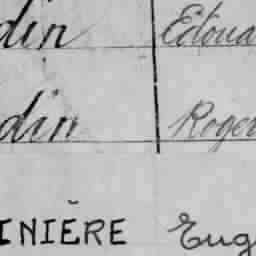 din Edoua
din Roger
INIÈRE Eug